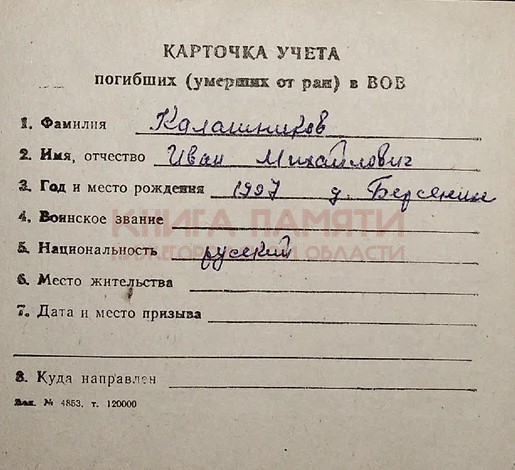 КАРТОЧКА УЧЕТА
погибших (умерших от ран) в ВОВ
1. Фамилия Калашников
2. Имя, отчество Иван Михайлович
3. Год и место рождения 1907 д. Берсенин
4. Воинское звание
КНИГА ПАМЯТИ
5. Национальность русский
НИЖЕГОРОДСКОЙ ОБЛАСТИ
6. Место жительства
7. Дата и место призыва
8. Куда направлен
Зак. № 4853, т. 120000